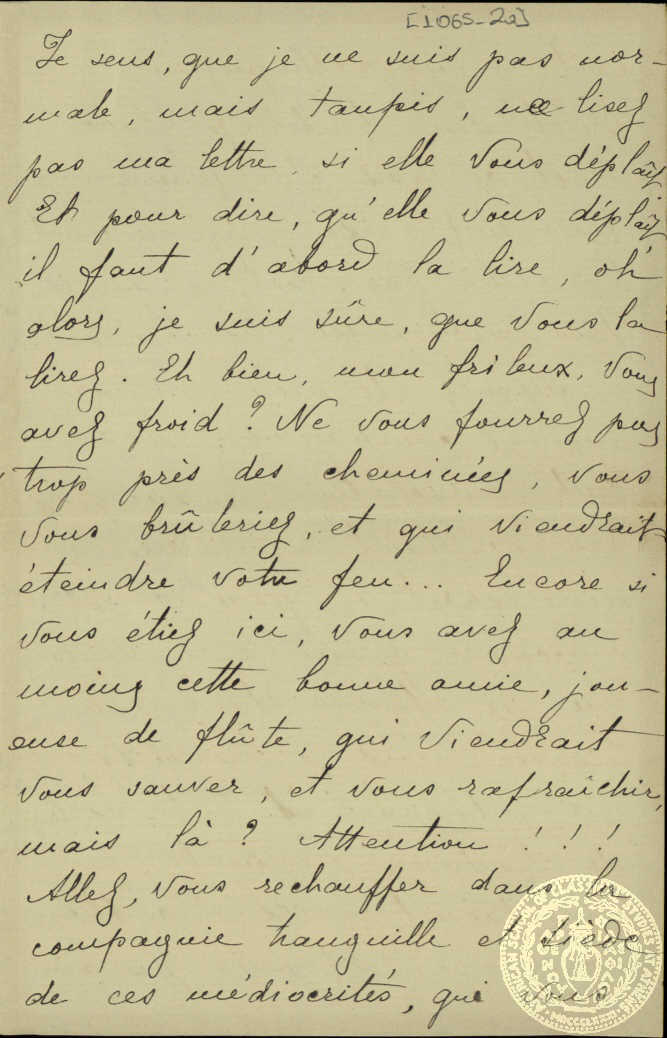 [1065-2a]
Je sens, que je ne suis pas nor-
male, mais tanpis, ne lisez
pas ma lettre, si elle Vous déplaît.
Et pour dire, qu'elle Vous déplaît,
il faut d'abord la lire, oh
alors, je suis sûre, que Vous la
lirez. Eh bien, mon frileux, Vous
avez froid? Ne Vous fourrez pas
trop près des cheminées, Vous
Vous brûleriez, et qui viendrait
éteindre votre feu... Encore si
Vous étiez ici, Vous avez au
moins cette bonne amie, jou-
euse de flûte, qui viendrait
Vous sauver, et Vous rafraîchir,
mais là? Attention!!!
Allez, Vous rechauffer dans la
compagnie tranquille et tiède
de ces médiocrités, qui Vous